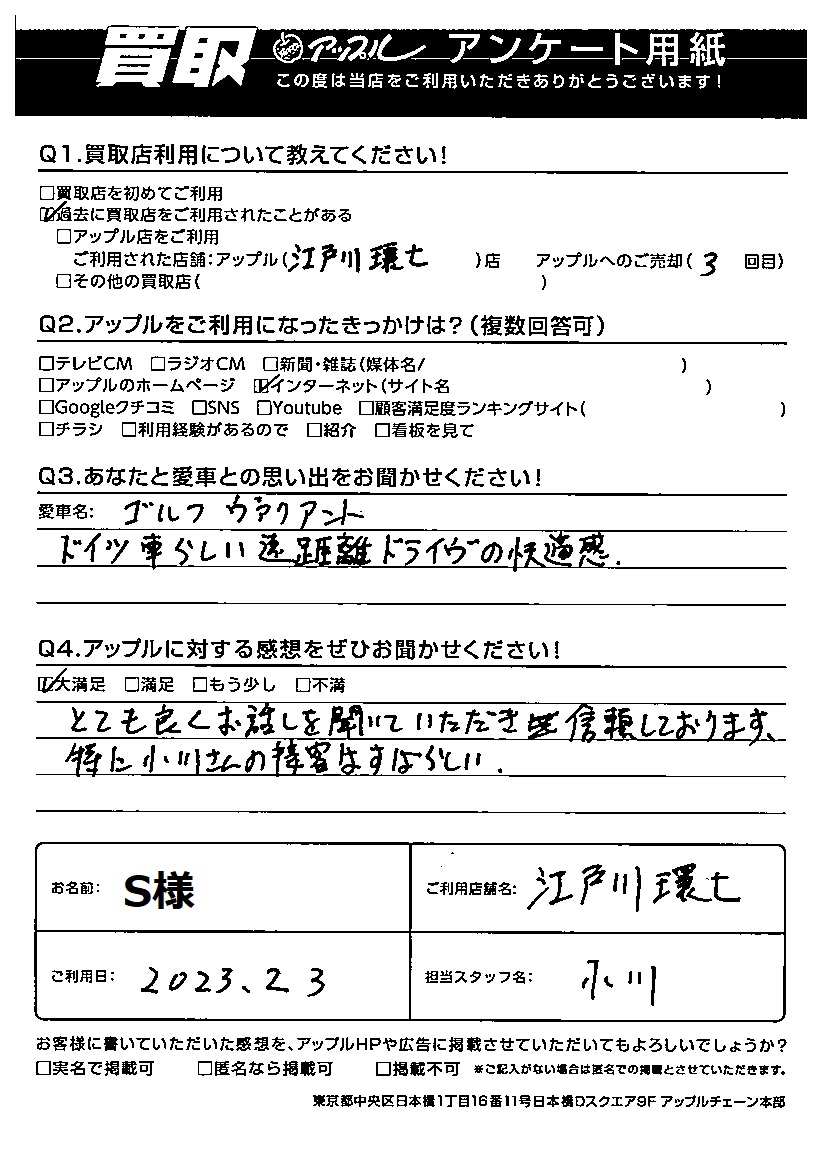 買取 アップル アンケート用紙
この度は当店をご利用いただきありがとうございます!
Q1.買取店利用について教えてください!
□買取店を初めてご利用
☑過去に買取店をご利用されたことがある
□アップル店をご利用
ご利用された店舗:アップル(江戸川環七 )店 アップルへのご売却(3 回目)
□その他の買取店( )
Q2.アップルをご利用になったきっかけは?(複数回答可)
□テレビCM □ラジオCM □新聞・雑誌(媒体名/ )
□アップルのホームページ ☑インターネット(サイト名 )
□Googleクチコミ □SNS □Youtube □顧客満足度ランキングサイト( )
□チラシ □利用経験があるので □紹介 □看板を見て
Q3.あなたと愛車との思い出をお聞かせください!
愛車名: ゴルフ ヴァリアント
ドイツ車らしい遠距離ドライヴの快適感.
Q4.アップルに対する感想をぜひお聞かせください!
☑大満足 □満足 □もう少し □不満
とても良くお話しを聞いていただき 信頼しております、
特に小川さんの接客はすばらしい.
お名前: S様 ご利用店舗名: 江戸川環七
ご利用日: 2023、2 3 担当スタッフ名: 小川
お客様に書いていただいた感想を、アップルHPや広告に掲載させていただいてもよろしいでしょうか?
□実名で掲載可 □匿名なら掲載可 □掲載不可 ※ご記入がない場合は匿名での掲載とさせていただきます。
東京都中央区日本橋1丁目16番11号日本橋Dスクエア9F アップルチェーン本部